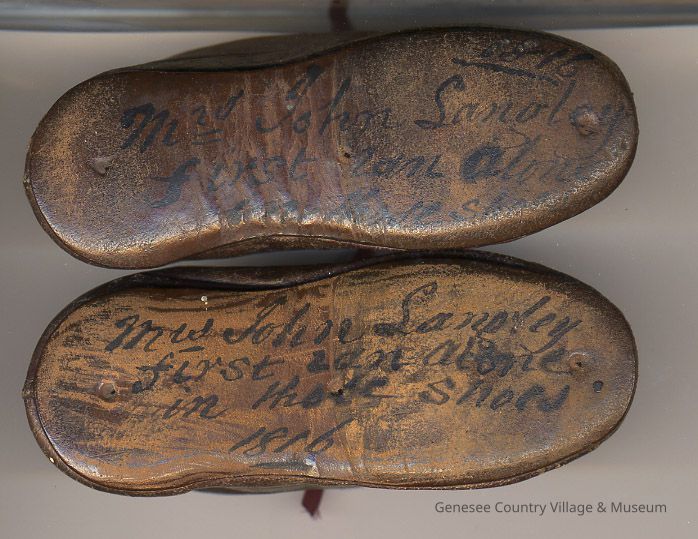 1816
Mrs John Langley
first ran alone
in these shoes
Mrs John Langley
first ran alone
in these shoes
1816
Genesee Country Village & Museum